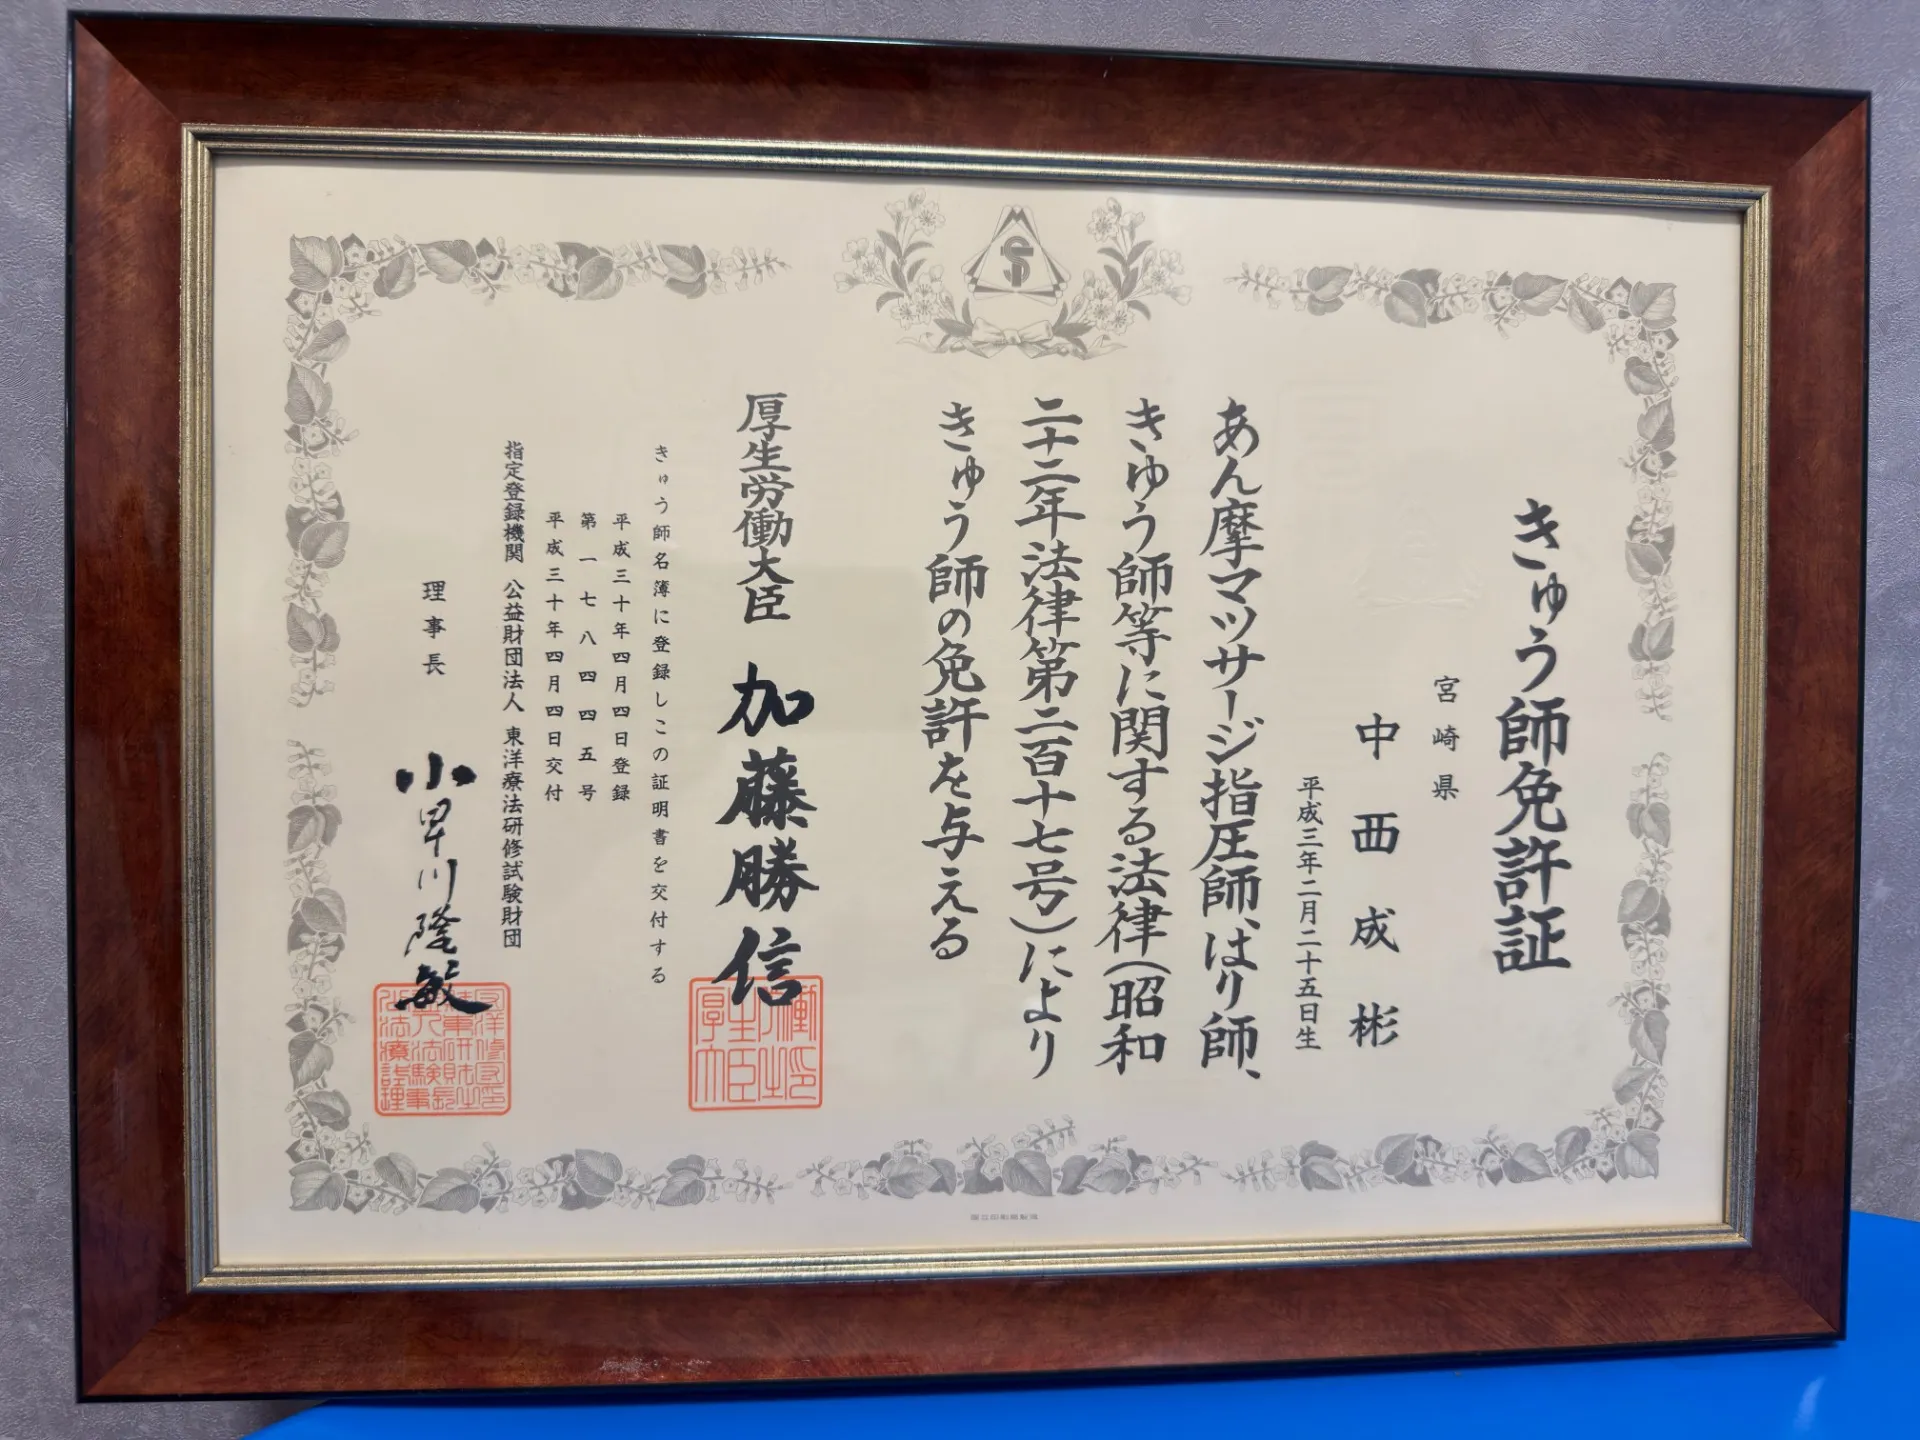 きゅう師免許証
宮崎県
中西成彬
平成三年二月二十五日生
あん摩マツサージ指圧師、はり師、
きゅう師等に関する法律(昭和
二十二年法律第二百十七号)により
きゅう師の免許を与える
厚生労働大臣 加藤勝信
きゅう師名簿に登録しこの証明書を交付する
平成三十年四月四日登録
第一七八四四五号
平成三十年四月四日交付
指定登録機関 公益財団法人 東洋療法研修試験財団
理事長 小早川隆敏
国立印刷局製造